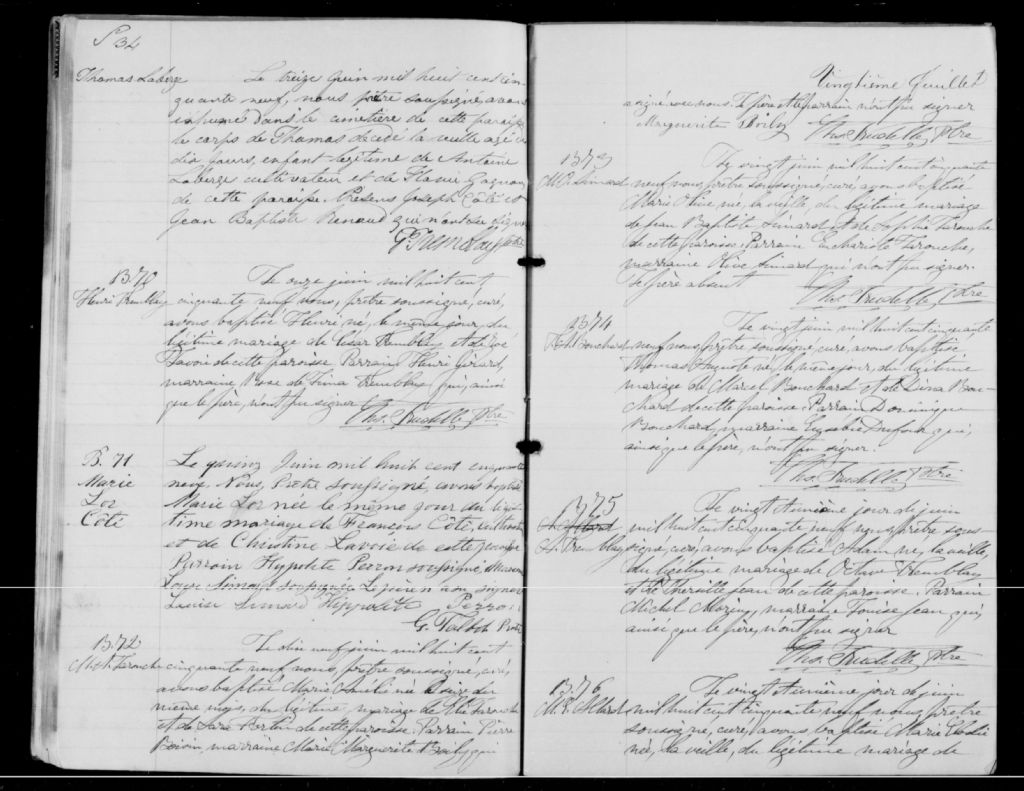 S 34
Thomas Laberge
Le treize juin mil huit cent cin
quante neuf, nous prêtre soussigné, avons
inhumé dans le cimetière de cette paroisse
le corps de Thomas décédé la veille agé de
dix jours, enfant légitime de Antoine
Laberge cultivateur et de Gagnon
de cette paroisse. Présens Joseph Côté et
Jean Baptiste Renaud qui n'ont su signer
G. Tremblay Ptre
B. 70
Henri Tremblay
Le onze juin mil huit cent
cinquante neuf nous, prêtre soussigné, curé,
avons baptisé Henri né, le même jour, du
légitime mariage de César Tremblay et de
Savoie de cette paroisse Parrain Henri Girard,
marraine Rose de Lima Tremblay qui, ainsi
que le père, n'ont pu signer
Ths. Trudelle, Ptre
B. 71
Marie
Lor
Côté
Le quinz Juin mil huit cent cinquante
neuf. Nous, Prêtre soussigné, avons baptisé
Marie Lor née le même jour du légi-
time mariage de François Côté, cultivateur
et de Christine Lavoie de cette paroisse
Parrain Hypolite Perron soussigné, Marraine
Louise Simard soussignée Le père n'a su signer
Louise Simard Hippolite Perron
G. Talbot Ptre
B. 72
Larouche
Le dix neuf juin mil huit cent
cinquante neuf nous, prêtre soussigné, curé,
avons baptisé Marie née le seize du
même mois, du légitime mariage de Larouche
et de Fortin de cette paroisse. Parrain Pierre
Boivin, marraine Marie Marguerite Boily, qui
Vingtième Juillet
signé avec nous. Le père et le parrain n'ont pu signer
Marguerite Boily
Ths. Trudelle, Ptre
B. 73
M. O. Simard
Le vingt juin mil huit cent cinquante
neuf nous prêtre soussigné, curé, avons baptisé
Marie Olive née, la veille, du légitime mariage
de Jean Baptiste Simard et de Sophie Larouche
de cette paroisse. Parrain Larouche,
marraine Olive Simard qui n'ont pu signer.
Le père absent
Ths. Trudelle, Ptre
B. 74
Bouchard
Le vingt juin mil huit cent cinquante
neuf nous prêtre soussigné, curé, avons baptisé
Thomas Auguste né, le même jour, du légitime
mariage de Marcel Bouchard et de Lina Bou
chard de cette paroisse. Parrain Dominique
Bouchard, marraine Dufour qui,
ainsi que le père, n'ont pu signer.
Ths. Trudelle, Ptre
B. 75
A. Tremblay
Le vingt unième jour de juin
mil huit cent cinquante neuf nous prêtre sous-
signé, curé, avons baptisé Adam né, la veille,
du légitime mariage de Octave Tremblay
et de Jean de cette paroisse. Parrain
Michel, marraine Louise Jean qui,
ainsi que le père, n'ont pu signer
Ths. Trudelle, Ptre
B. 76
M. E. Allard
Le vingt unième jour de juin
mil huit cent cinquante neuf nous prêtre
soussigné, curé, avons baptisé Marie
née, la veille, du légitime mariage de